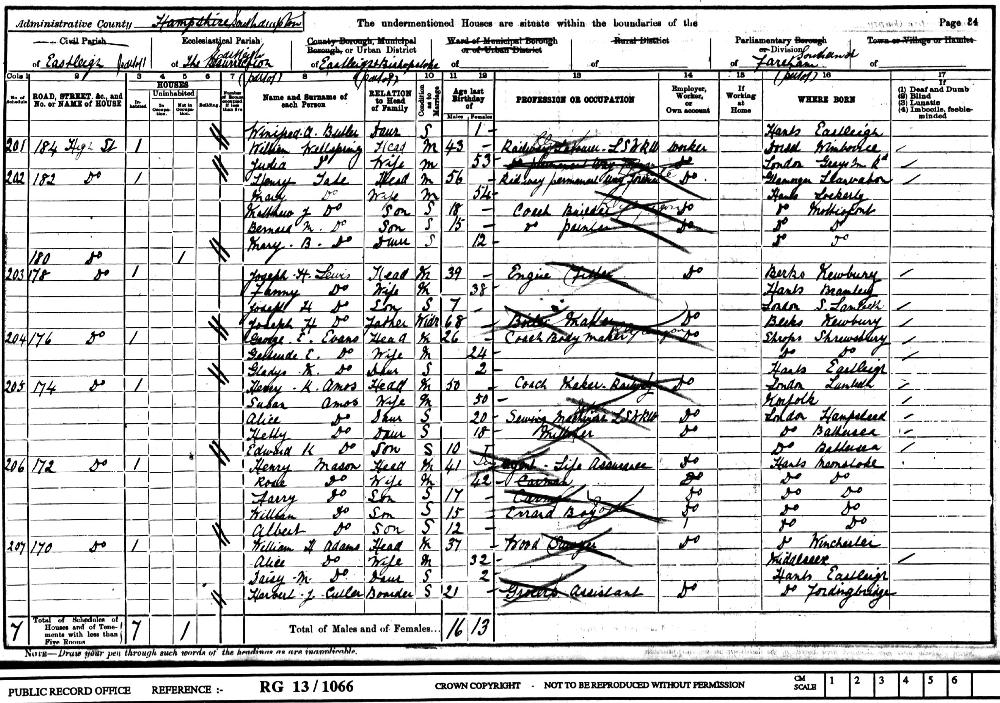 Administrative County Hampshire Southampton The undermentioned Houses are situate within the boundaries of the Page 24
Civil Parish Ecclesiastical Parish County Borough, Municipal Borough, or Urban District Ward of Municipal Borough or of Urban District Rural District Parliamentary Borough or Division Town or Village or Hamlet
of Eastleigh (part of) of Eastleigh The Resurrection (part of) of Eastleigh & Bishopstoke (part of) of of of Fareham (part of) of
Cols. 1 2 3 4 5 6 7 8 9 10 11 12 13 14 15 16 17
No. of Schedule ROAD, STREET, &c., and No. or NAME of HOUSE HOUSES In-habited Uninhabited In Occupation Not in Occupation Building Name and Surname of each Person RELATION to Head of Family Condition as to Marriage Age last Birthday of Males Females PROFESSION OR OCCUPATION Employer, Worker, or Own account If Working at Home WHERE BORN (1) Deaf and Dumb (2) Blind (3) Lunatic (4) Imbecile, feeble-minded
Winifred A. Butler Daur S 1 Hants Eastleigh
201 184 High St 1 William Wellspring Head M 43 Railway L.S.W.R.W worker Dorset Wimborne
Lydia Do Wife M 53 London Grays Inn Rd
202 182 Do 1 Henry Head M 56 Railway permanent way Do Glamorgan
Mary Do Wife M 54 Hants Lockerly
Matthew J Do Son S 18 Coach Do Do Mottisfont
Bernard M. Do Son S 15 Do painter Do Do Do
Mary B. Do Daur S 12 Do Do
180 Do 1
203 178 Do 1 Joseph H. Lewis Head M 39 Engine Fitter Do Berks Newbury
Fanny Do Wife M 38 Hants Bramley
Joseph H Do Son S 7 London S. Lambeth
Joseph H Do Father Widr 68 Do Berks Newbury
204 176 Do 1 George E. Evans Head M 26 Coach Body Maker Do Shrops Shrewsbury
Gertrude E. Do Wife M 24 Do Do
Gladys M Do Daur S 2 Hants Eastleigh
205 174 Do 1 Henry K. Amos Head M 50 Coach Maker Railway Do London Lambeth
Susan Amos Wife M 50 Norfolk
Alice Do Daur S 20 Sewing Machinist L.S.W.R.W Do London Hampstead
Hetty Do Daur S 18 Milliner Do Do Battersea
Edward K Do Son S 10 Do Battersea
206 172 Do 1 Henry Mason Head M 41 Agent - Life Assurance Do Hants Meonstoke
Rose Do Wife M 42 Carman Do Do Do
Harry Do Son S 17 Carman Do Do Do
William Do Son S 15 Errand Boy Do Do Do
Albert Do Son S 12 Do Do
207 170 Do 1 William H Adams Head M 37 Wood Sawyer Do Do Winchester
Alice Do Wife M 32 Middlesex
Daisy M. Do Daur S 2 Hants Eastleigh
Herbert J. Cutler Boarder S 21 Grocers Assistant Do Do Fordingbridge
7 Total of Schedules of Houses and of Tenements with less than Five Rooms 7 1 Total of Males and of Females... 16 13
NOTE—Draw your pen through such words of the headings as are inapplicable.
PUBLIC RECORD OFFICE REFERENCE :- RG 13 / 1066 CROWN COPYRIGHT - NOT TO BE REPRODUCED WITHOUT PERMISSION CM SCALE 1 2 3 4 5 6